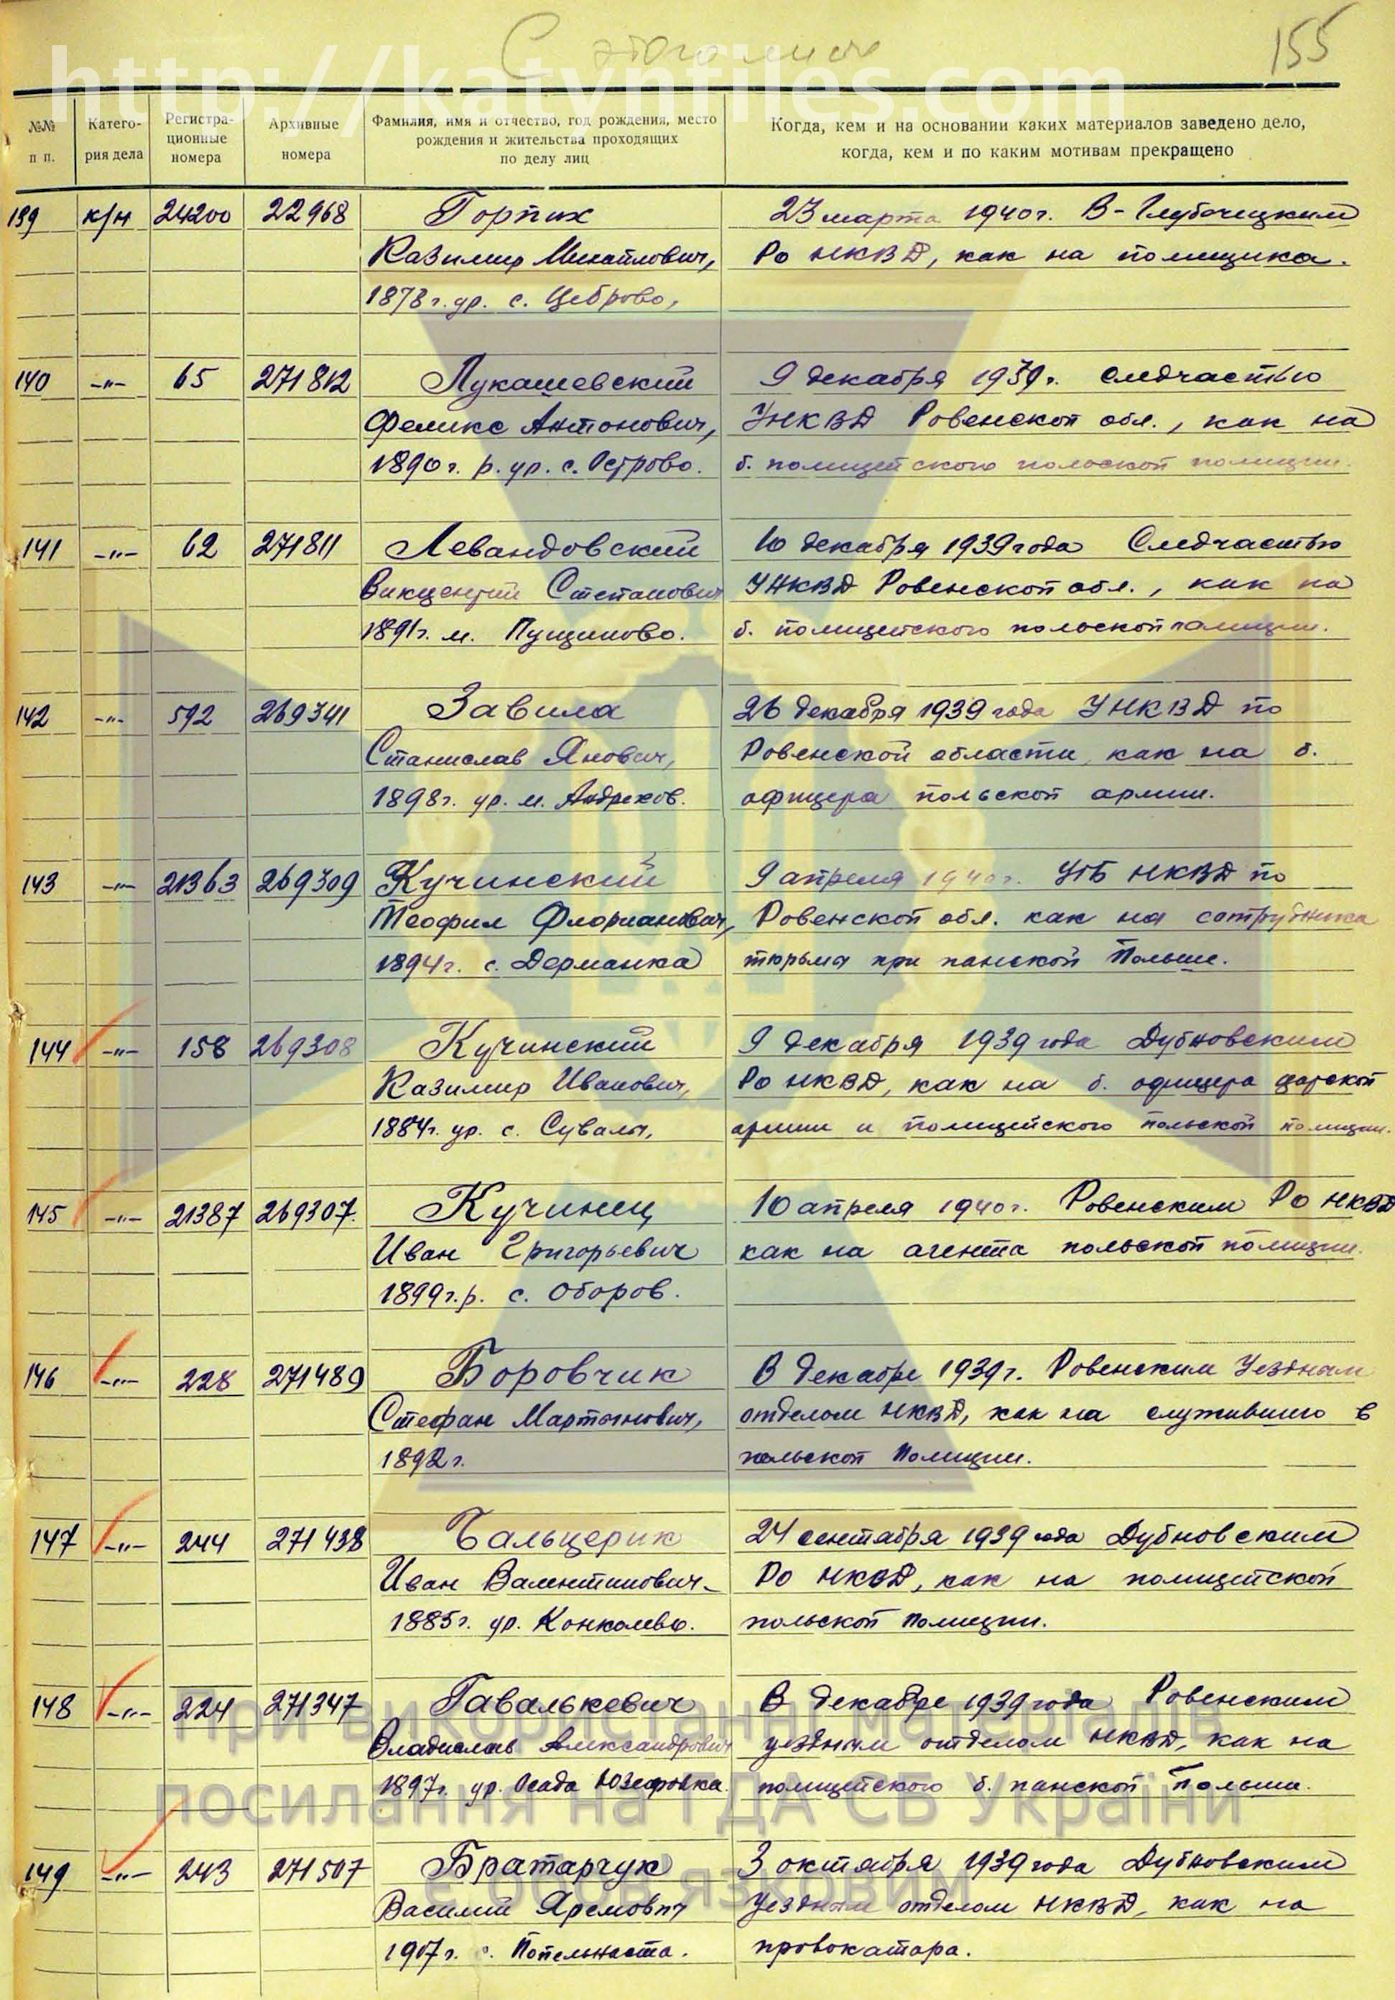 http://katynfiles.com
С этого листа
155
№№ п п.
Катего- рия дела
Регистра- ционные номера
Архивные номера
Фамилия, имя и отчество, год рождения, место рождения и жительства проходящих по делу лиц
Когда, кем и на основании каких материалов заведено дело, когда, кем и по каким мотивам прекращено
139 к/н 24200 22968 Горпих 23 марта 1940г. В-Глубочецким
Казимир Михайлович, Ро НКВД, как на помещика.
1878г. ур. с. Цеброво,
140 -"- 65 271812 Лукашевский 9 декабря 1939г. следчастью
Феликс Антонович, УНКВД Ровенской обл., как на
1890г. р. ур. с. Острово. б. полицейского польской полиции.
141 -"- 62 271811 Левандовский 10 декабря 1939 года Следчастью
Викцентий Степанович УНКВД Ровенской обл., как на
1891г. м. Пущиково. б. полицейского польской полиции.
142 -"- 592 269341 Завила 26 декабря 1939 года УНКВД по
Станислав Янович, Ровенской области, как на б.
1898г. ур. м. Андрехов. офицера польской армии.
143 -"- 21363 269309 Кучинский 9 апреля 1940г. УГБ НКВД по
Теофил Флорианович, Ровенской обл. как на сотрудника
1894г. с. Дерманка тюрьмы при панской Польше.
144 -"- 158 269308 Кучинский 9 декабря 1939 года Дубновским
Казимир Иванович, Ро НКВД, как на б. офицера царской
1884г. ур. с. Сувалы, армии и полицейского польской полиции.
145 -"- 21387 269307. Кучинец 10 апреля 1940г. Ровенским Ро НКВД
Иван Григорьевич как на агента польской полиции.
1899г.р. с. Оборов.
146 -"- 228 271489 Боровчик В декабре 1939г. Ровенским Уездным
Стефан Мартынович, отделом НКВД, как на служившего в
1892г. польской Полиции.
147 -"- 244 271438 Бальцерик 24 сентября 1939 года Дубновским
Иван Валентинович Ро НКВД, как на полицейской
1885г. ур. Конколево. польской Полиции.
148 -"- 224 271347 Гавалькевич В декабре 1939 года Ровенским
Владислав Александрович уездным отделом НКВД, как на
1897г. ур. Осада Юзефовка. полицейского б. панской Польши.
149 -"- 243 271507 Братарчук 3 октября 1939 года Дубновским
Василий Яремович Уездным отделом НКВД, как на
1907г. с. Попельнаста. провокатора.
При використанні матеріалів
посилання на ГДА СБ України
є обов'язковим